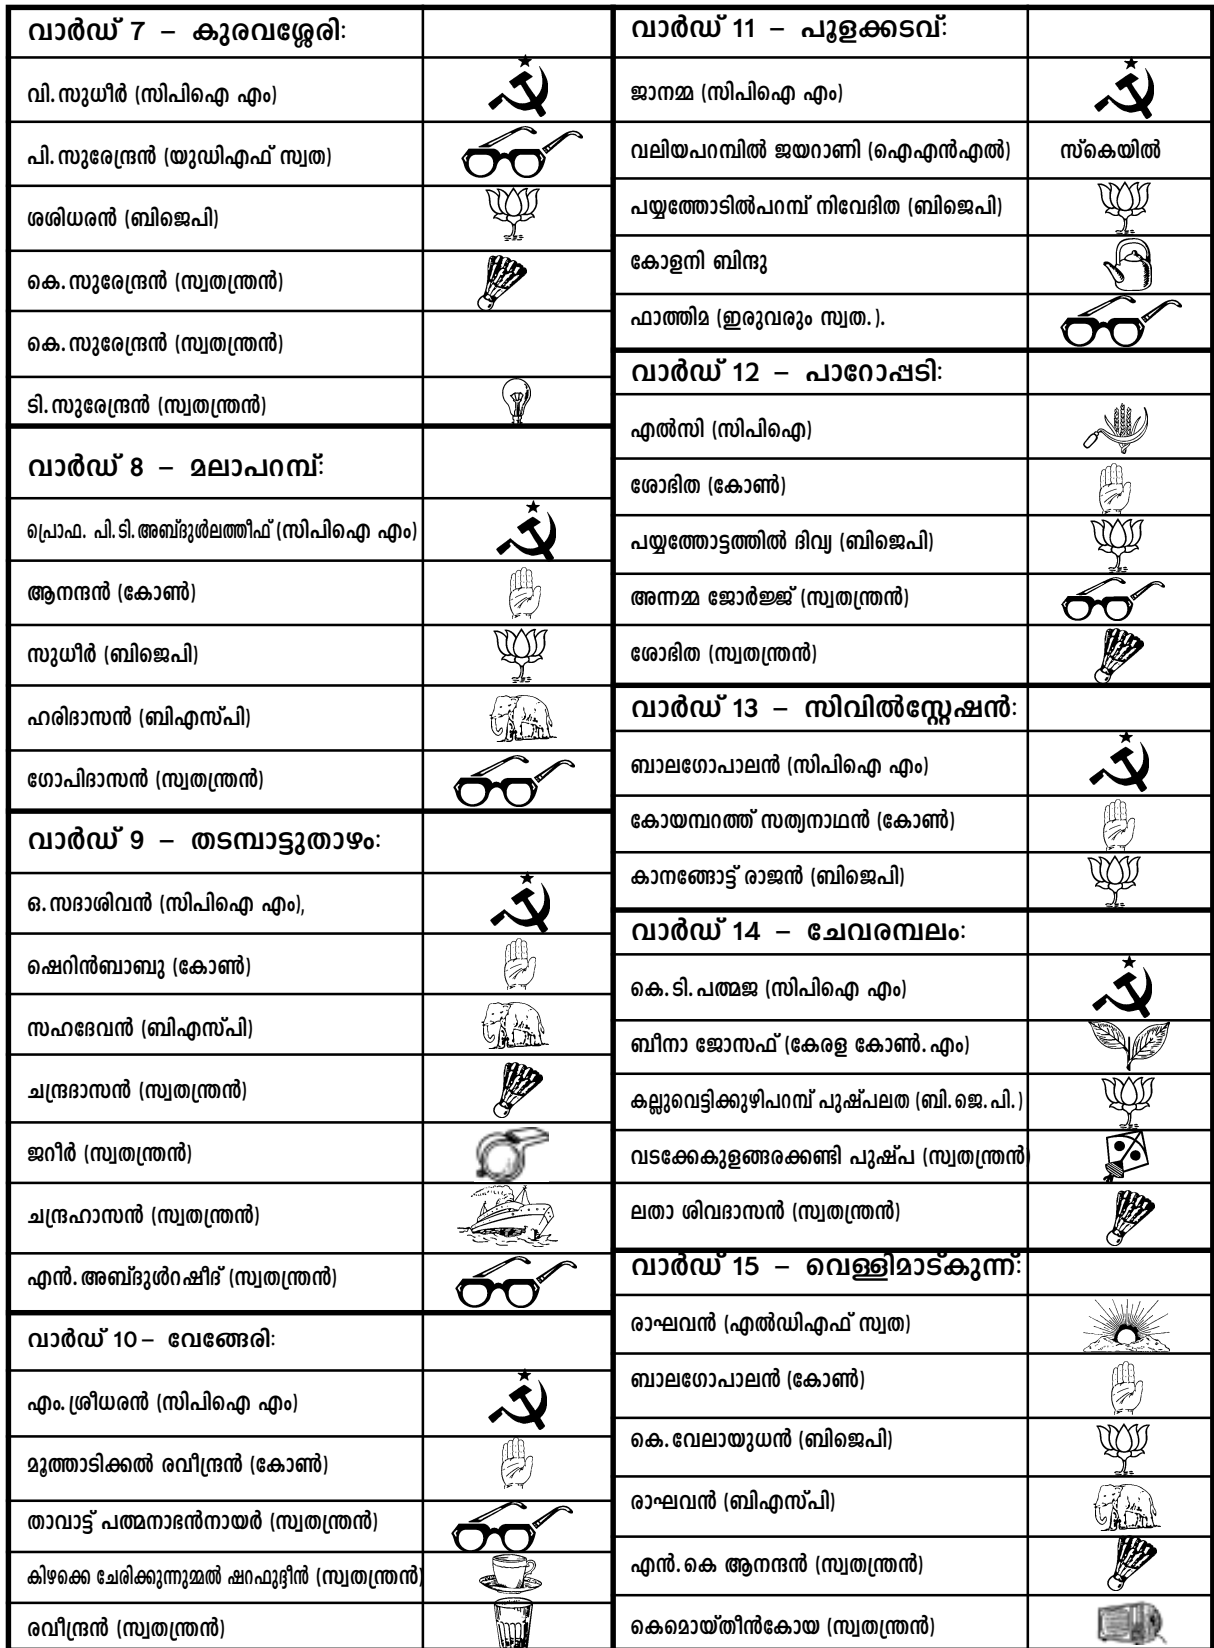 വാർഡ് 7 – കുരവശ്ശേരി:
വി.സുധീർ (സിപിഐ എം)
പി.സുരേന്ദ്രൻ (യുഡിഎഫ് സ്വത)
ശശിധരൻ (ബിജെപി)
കെ.സുരേന്ദ്രൻ (സ്വതന്ത്രൻ)
കെ.സുരേന്ദ്രൻ (സ്വതന്ത്രൻ)
ടി.സുരേന്ദ്രൻ (സ്വതന്ത്രൻ)
വാർഡ് 8 – മലാപറമ്പ്:
പ്രൊഫ. പി.ടി.അബ്ദുൾലത്തീഫ് (സിപിഐ എം)
ആനന്ദൻ (കോൺ)
സുധീർ (ബിജെപി)
ഹരിദാസൻ (ബിഎസ്പി)
ഗോപിദാസൻ (സ്വതന്ത്രൻ)
വാർഡ് 9 – തടമ്പാട്ടുതാഴം:
ഒ.സദാശിവൻ (സിപിഐ എം),
ഷെറിൻബാബു (കോൺ)
സഹദേവൻ (ബിഎസ്പി)
ചന്ദ്രദാസൻ (സ്വതന്ത്രൻ)
ജറീർ (സ്വതന്ത്രൻ)
ചന്ദ്രഹാസൻ (സ്വതന്ത്രൻ)
എൻ.അബ്ദുൾറഷീദ് (സ്വതന്ത്രൻ)
വാർഡ് 10 – വേങ്ങേരി:
എം.ശ്രീധരൻ (സിപിഐ എം)
മൂത്താടിക്കൽ രവീന്ദ്രൻ (കോൺ)
താവാട്ട് പത്മനാഭൻനായർ (സ്വതന്ത്രൻ)
കിഴക്കെ ചേരിക്കുന്നുമ്മൽ ഷറഫുദ്ദീൻ (സ്വതന്ത്രൻ)
രവീന്ദ്രൻ (സ്വതന്ത്രൻ)
വാർഡ് 11 – പൂളക്കടവ്:
ജാനമ്മ (സിപിഐ എം)
വലിയപറമ്പിൽ ജയറാണി (ഐഎൻഎൽ) സ്കെയിൽ
പയ്യത്തോടിൽപറമ്പ് നിവേദിത (ബിജെപി)
കോളനി ബിന്ദു
ഫാത്തിമ (ഇരുവരും സ്വത.).
വാർഡ് 12 – പാറോപ്പടി:
എൽസി (സിപിഐ)
ശോഭിത (കോൺ)
പയ്യത്തോട്ടത്തിൽ ദിവ്യ (ബിജെപി)
അന്നമ്മ ജോർജ്ജ് (സ്വതന്ത്രൻ)
ശോഭിത (സ്വതന്ത്രൻ)
വാർഡ് 13 – സിവിൽസ്റ്റേഷൻ:
ബാലഗോപാലൻ (സിപിഐ എം)
കോയമ്പറത്ത് സത്യനാഥൻ (കോൺ)
കാനങ്ങോട്ട് രാജൻ (ബിജെപി)
വാർഡ് 14 – ചേവരമ്പലം:
കെ.ടി.പത്മജ (സിപിഐ എം)
ബീനാ ജോസഫ് (കേരള കോൺ.എം)
കല്ലുവെട്ടിക്കുഴിപറമ്പ് പുഷ്പലത (ബി.ജെ.പി.)
വടക്കേകുളങ്ങരക്കണ്ടി പുഷ്പ (സ്വതന്ത്രൻ)
ലതാ ശിവദാസൻ (സ്വതന്ത്രൻ)
വാർഡ് 15 – വെള്ളിമാട്കുന്ന്:
രാഘവൻ (എൽഡിഎഫ് സ്വത)
ബാലഗോപാലൻ (കോൺ)
കെ.വേലായുധൻ (ബിജെപി)
രാഘവൻ (ബിഎസ്പി)
എൻ.കെ ആനന്ദൻ (സ്വതന്ത്രൻ)
കെമൊയ്തീൻകോയ (സ്വതന്ത്രൻ)